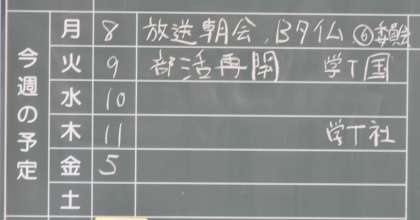 今週の予定
月 8 放送朝会、Bタ仏 ⑥委員会
火 9 部活再開 学T国
水 10
木 11 学T社
金 5
土